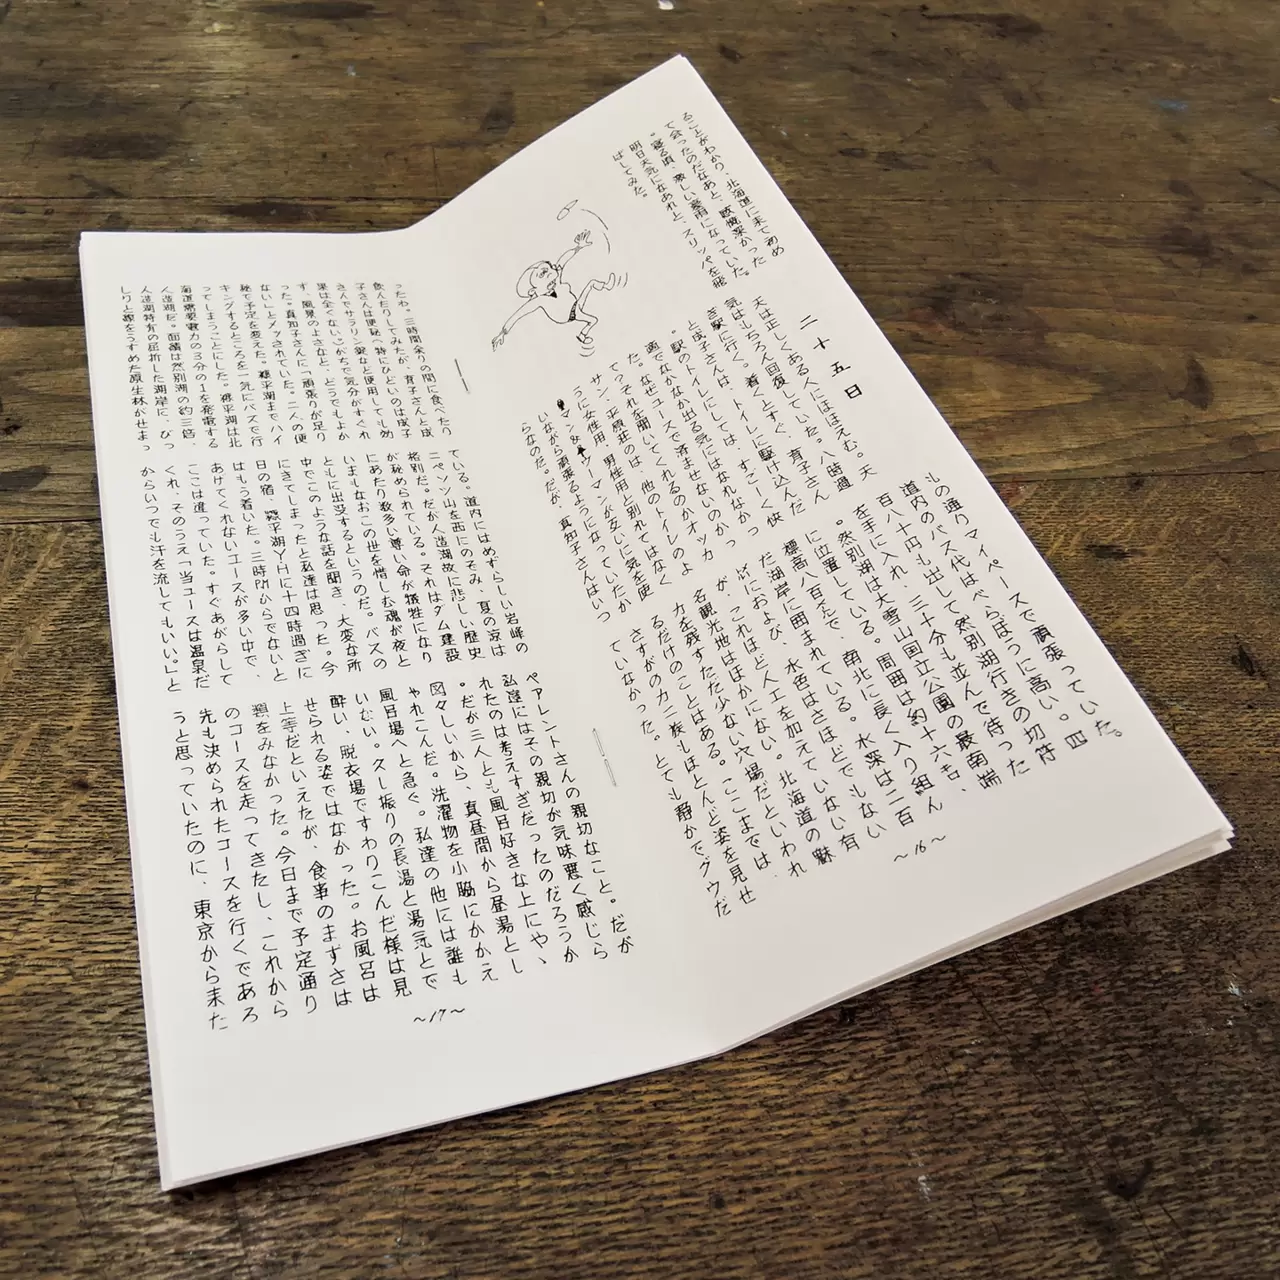 ることがわかり、北海道に来て初め
て会ったのだなあと、感慨深かった
。寝る頃、激しい豪雨になっていた。
明日天気になあれと、スリッパを飛
ばしてみた。
二十五日
天は正しくある人にほほえむ。天
気はもちろん回復していた。八時過
ぎ駅に行く。着くとすぐ、育子さん
と成子さんは、トイレに駆け込んだ
。駅のトイレにしては、すごーく快
適でなかなか出る気にはなれなかっ
た。なぜユースで済ませないのかっ
て?それを聞いてくれるのかオッカ
サン、平原荘のは、他のトイレのよ
うに女性用、男性用と別れてはなく
マン&ウーマンが互いに気を使
いながら頑張るようになっていたか
らなのだ。だが、真知子さんはいつ
もの通りマイペースで頑張っていた。
道内のバス代はべらぼうに高い。四
百八十円も出して然別湖行きの切符
を手に入れ、三十分も並んで待った
。然別湖は大雪山国立公園の最南端
に位置している。周囲は約十六キロ、
標高八百mで、南北に長く入り組ん
だ湖岸に囲まれている。水深は二百
mにおよび、水色はさほどでもない
が、これほど人工を加えていない有
名観光地はほかにない。北海道の魅
力を残すただ少ない穴場だといわれ
るだけのことはある。ここまでは、
さすがのカニ族もほとんど姿を見せ
ていなかった。とても静かでグウだ
〜16〜
ったわ。三時間余りの間に食べたり
飲んだりしてみたが、育子さんと成
子さんは便秘(特にひどいのは成子
さんでサラリン薬など使用しても効
果は全くない)がちで気分がすぐれ
ず、風景のよさなど、どうでもよか
った。真知子さんに「頑張りが足り
ない」とメッされていた。二人の便
秘で予定を変えた。糠平湖までハイ
キングするところを一気にバスで行
ってしまうことにした。糠平湖は北
海道需要電力の3分の1を発電する
人造湖だ。面積は然別湖の約三倍、
人造湖特有の屈折した湖岸に、びっ
しりと葉をうずめた原生林がせまっ
ている。道内にはめずらしい岩峰の
ニペソツ山を西にのぞみ、夏の涼は
格別だ。だが人造湖故に悲しい歴史
が秘められている。それはダム建設
にあたり数多い尊い命が犠牲になり
いまもなおこの世を惜しむ魂が夜と
ともに出没するというのだ。バスの
中でこのような話を聞き、大変な所
にきてしまったと私達は思った。今
日の宿、糠平湖YHに十四時過ぎに
はもう着いた。三時所からでないと
あげてくれないユースが多い中で、
ここは違っていた。すぐあがらして
くれ、そのうえ「当ユースは温泉だ
からいつでも汗を流してもいい。」と
ペアレントさんの親切なこと。だが
私達にはその親切が気味悪く感じら
れたのは考えすぎだったのだろうか
。だが三人とも風呂好きな上にや、
図々しいから、真昼間から昼湯とし
ゃれこんだ。洗濯物を小脇にかかえ
風呂場へと急ぐ。私達の他には誰も
いない。久し振りの長湯と湯気とで
酔い、脱衣場ですわりこんだ様は見
せられる姿ではなかった。お風呂は
上等だといえたが、食事のまずさは
類をみなかった。今日まで予定通り
のコースを走ってきたし、これから
先も決められたコースを行くであろ
うと思っていたのに、東京から来た
〜17〜